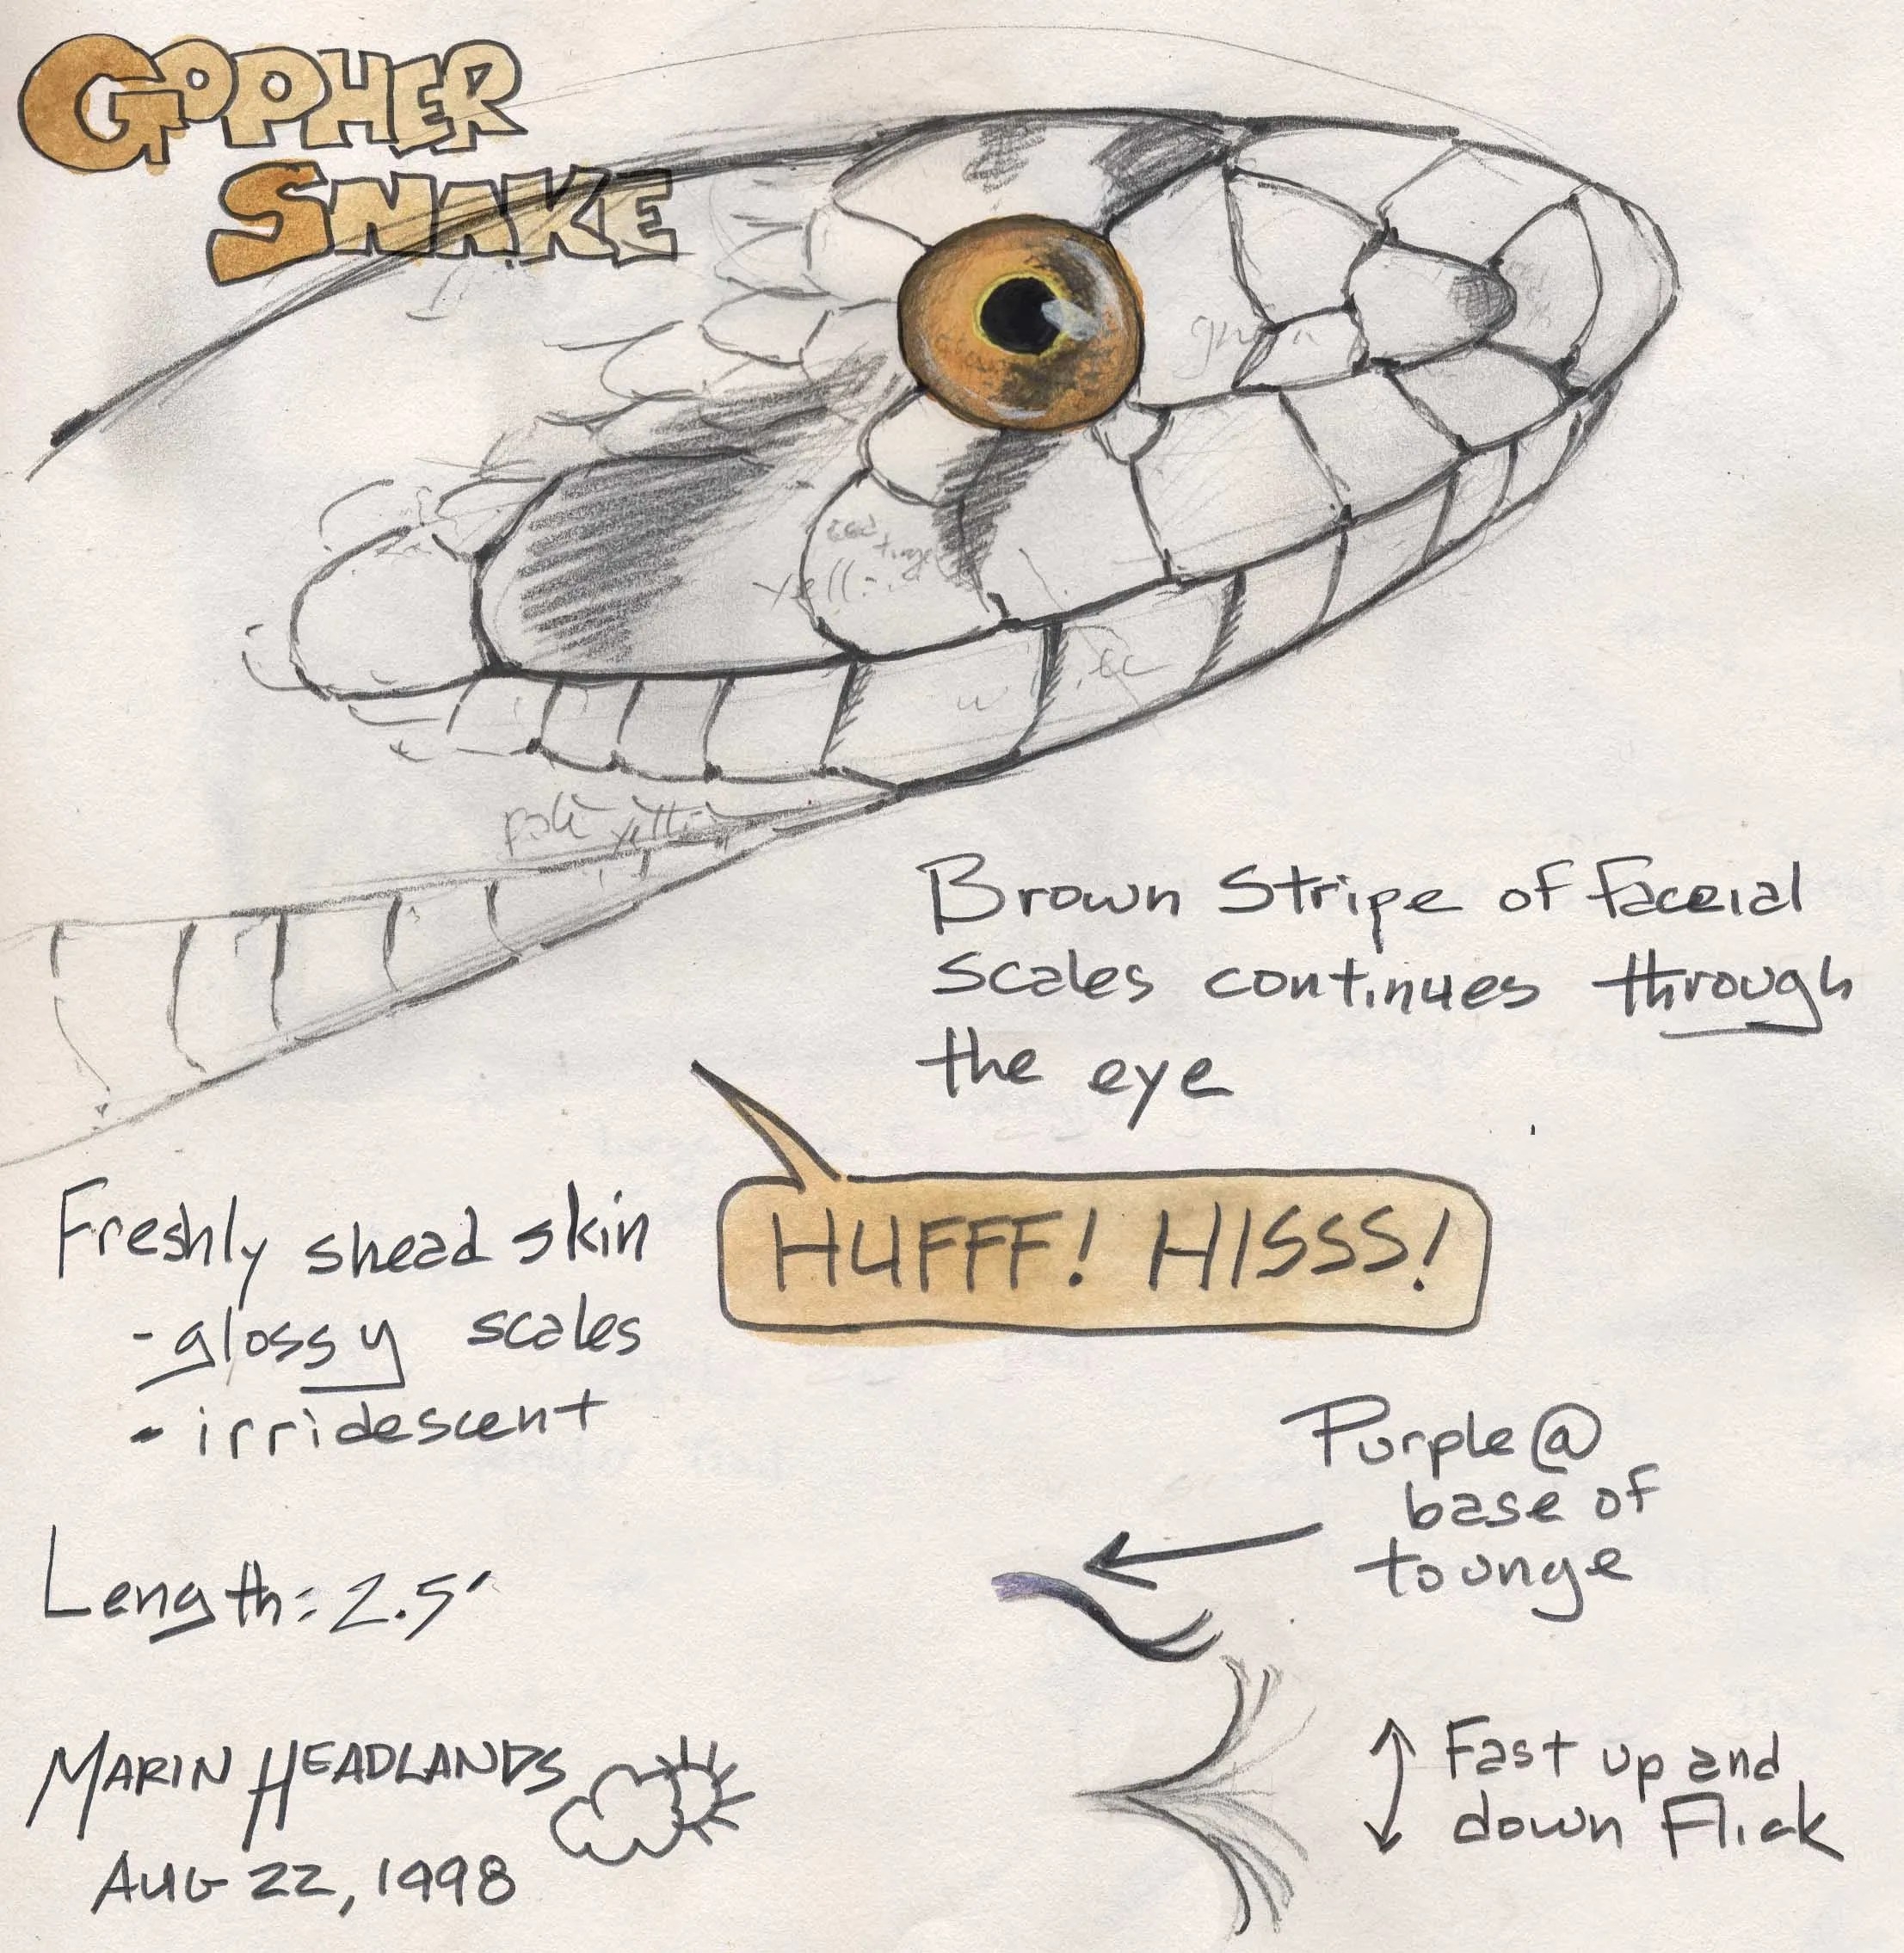 GOPHER
SNAKE
Brown Stripe of Faceial
Scales continues through
the eye
HUFFF! HISSS!
Freshly shead skin
- glossy scales
- irridescent
Length: 2.5'
Purple @
base of
tounge
Fast up and
down Flick
MARIN HEADLANDS
AUG 22, 1998